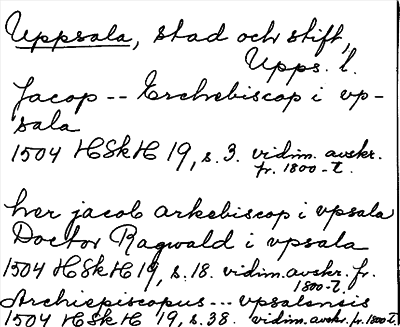 Uppsala, stad och stift,
Upps. l.
Jacop -- Erchebiscop i vp-
sala
1504 HSkH 19, s. 3. vidim. avskr.
fr. 1800-t.
her jacob arkebiscop i vpsala
Doctor Ragwald i vpsala
1504 HSkH 19, s. 18. vidim. avskr. fr.
1800-t.
Archiepiscopus --- vpsalensis
1504 HSkH 19, s. 38. vidim. avskr. fr. 1800-t.